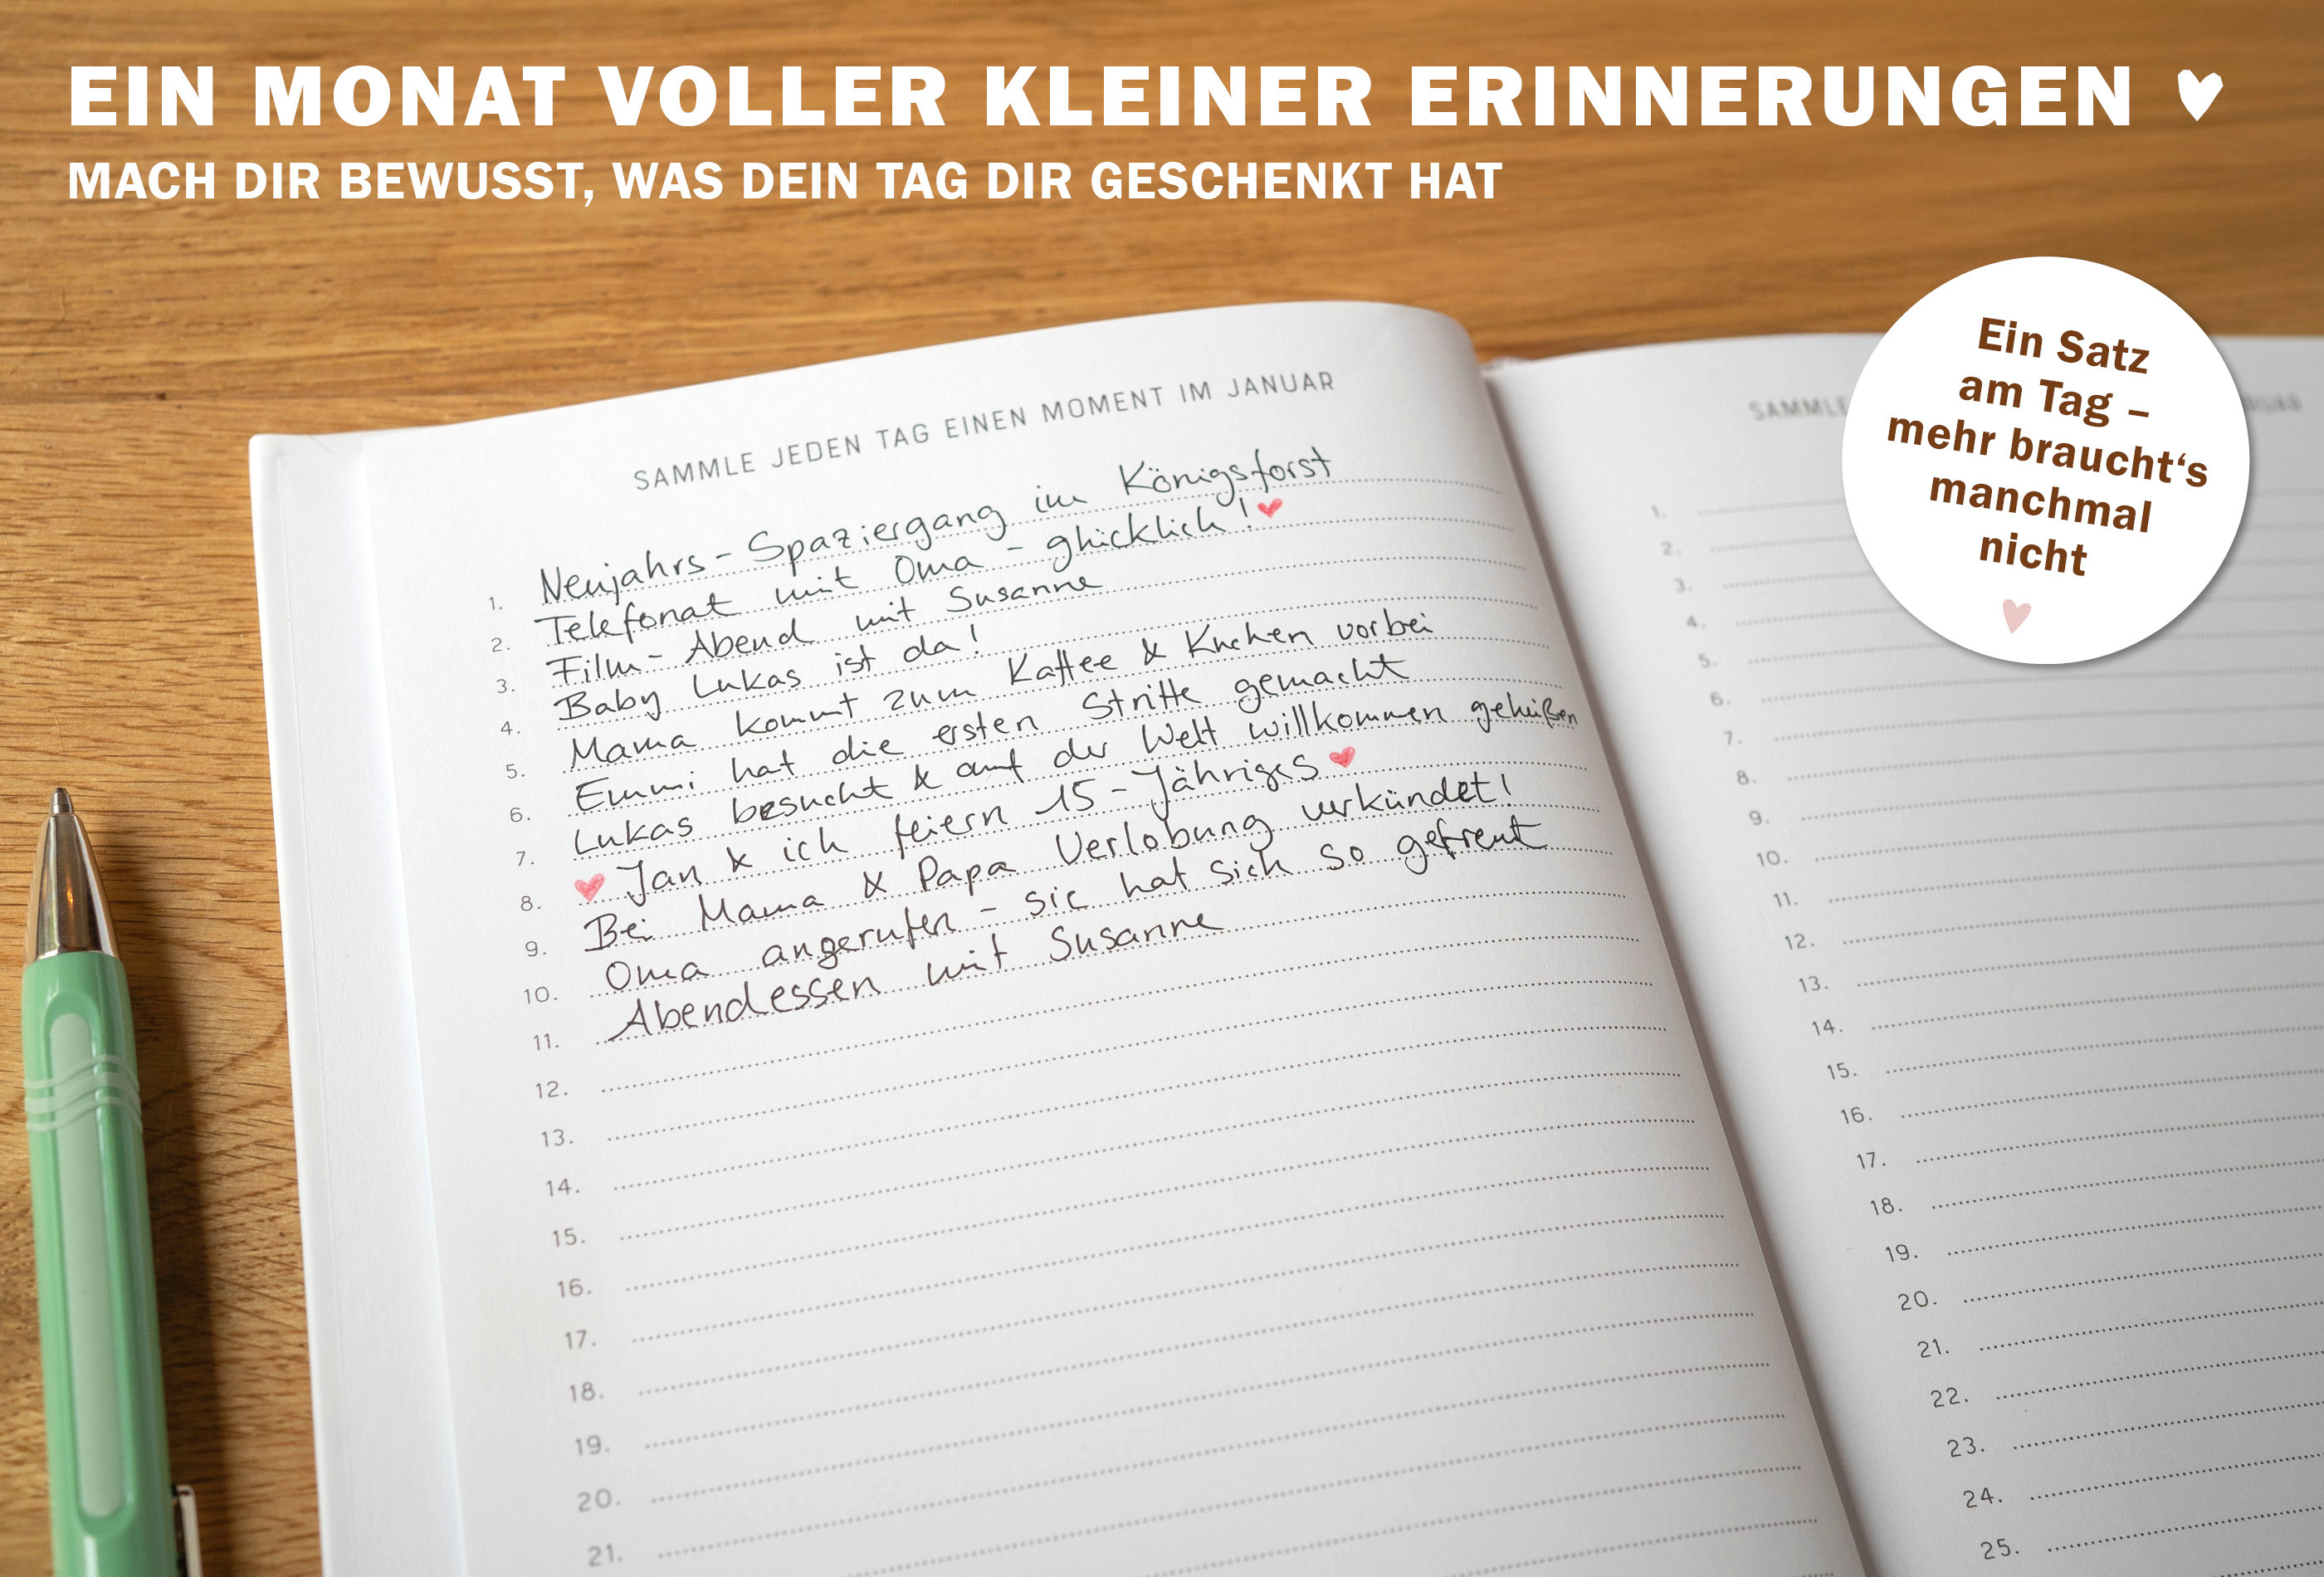 EIN MONAT VOLLER KLEINER ERINNERUNGEN
MACH DIR BEWUSST, WAS DEIN TAG DIR GESCHENKT HAT
SAMMLE JEDEN TAG EINEN MOMENT IM JANUAR
1. Neujahrs-Spaziergang im Königsforst
2. Telefonat mit Oma - glücklich!
3. Film-Abend mit Susanne
4. Baby Lukas ist da!
5. Mama kommt zum Kaffee & Kuchen vorbei
6. Emmi hat die ersten Stritte gemacht
7. Lukas besucht & auf der Welt willkommen geheißen
8. Jan & ich feiern 15-Jähriges
9. Bei Mama & Papa Verlobung verkündet!
10. Oma angerufen - sie hat sich so gefreut
11. Abendessen mit Susanne
12.
13.
14.
15.
16.
17.
18.
19.
20.
21.
Ein Satz
am Tag –
mehr braucht‘s
manchmal
nicht
SAMMLE
1.
2.
3.
4.
5.
6.
7.
8.
9.
10.
11.
12.
13.
14.
15.
16.
17.
18.
19.
20.
21.
22.
23.
24.
25.